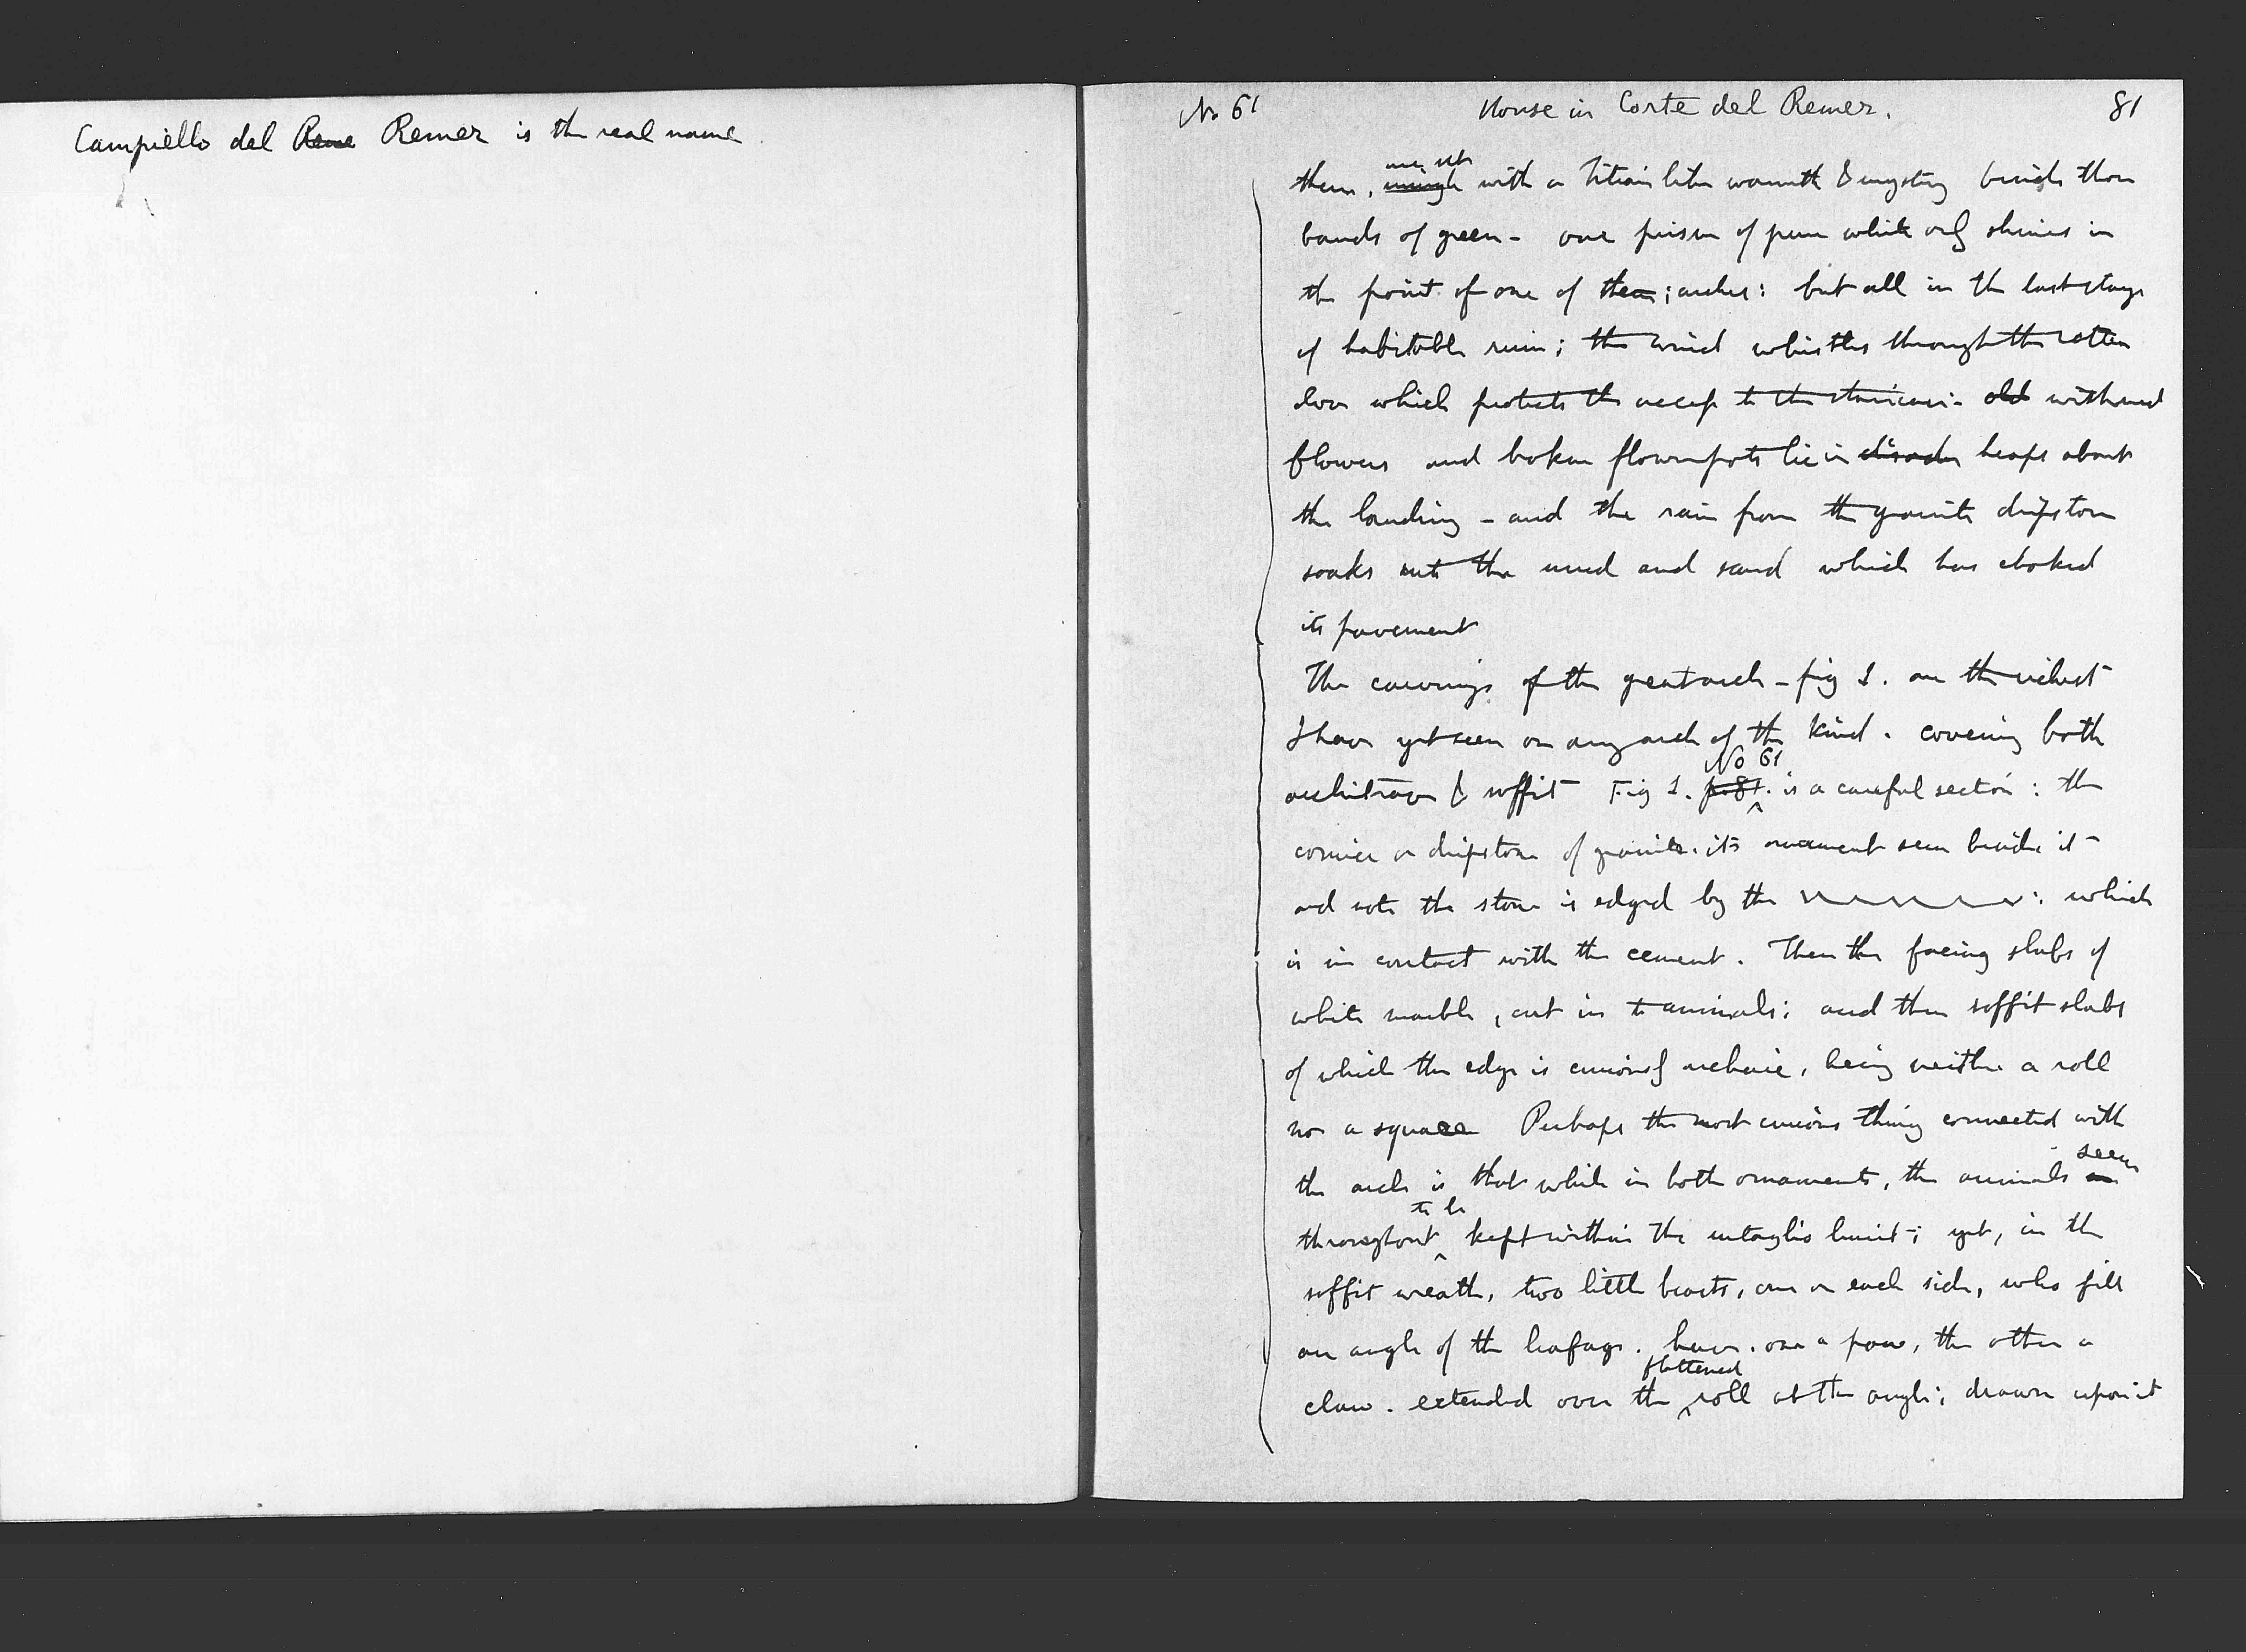 Campiello del Rene Remer is the real name
No 61 House in Corte del Remer. 81
are set
them, with a Titian like warmth & mystery beside those
bands of green - one prism of pure white only shines in
the point of one of these; arches: but all in the last stage
of habitable ruin; the wind whistles through the rotten
door which protects the access to the staircase:- old withered
flowers and broken flowerpots lie in disorder heaps about
the landing - and the rain from the granite dripstone
soaks into the mud and sand which has choked
its pavement
The carvings of the great arch - fig 1. are the richest
I have yet seen on any arch of the kind. covering both
No 61
architrave & soffit Fig 1. p. 81. is a careful section: the
cornice or dripstone of granite. its ornament seen beside it -
and note the stone is edged by the : which
is in contact with the cement. Then the facing slabs of
white marble, cut in to animals: and then soffit slabs
of which the edge is curiously archaic, being neither a roll
nor a square Perhaps the most curious thing connected with
seem
the arch is that while in both ornaments, the animals are
to be
throughout kept within the intaglio limit; yet, in the
soffit wreath, two little beasts, one on each side, who fill
an angle of the leafage. have. one a paw, the other a
flattened
claw. extended over the roll at the angle; drawn upon it